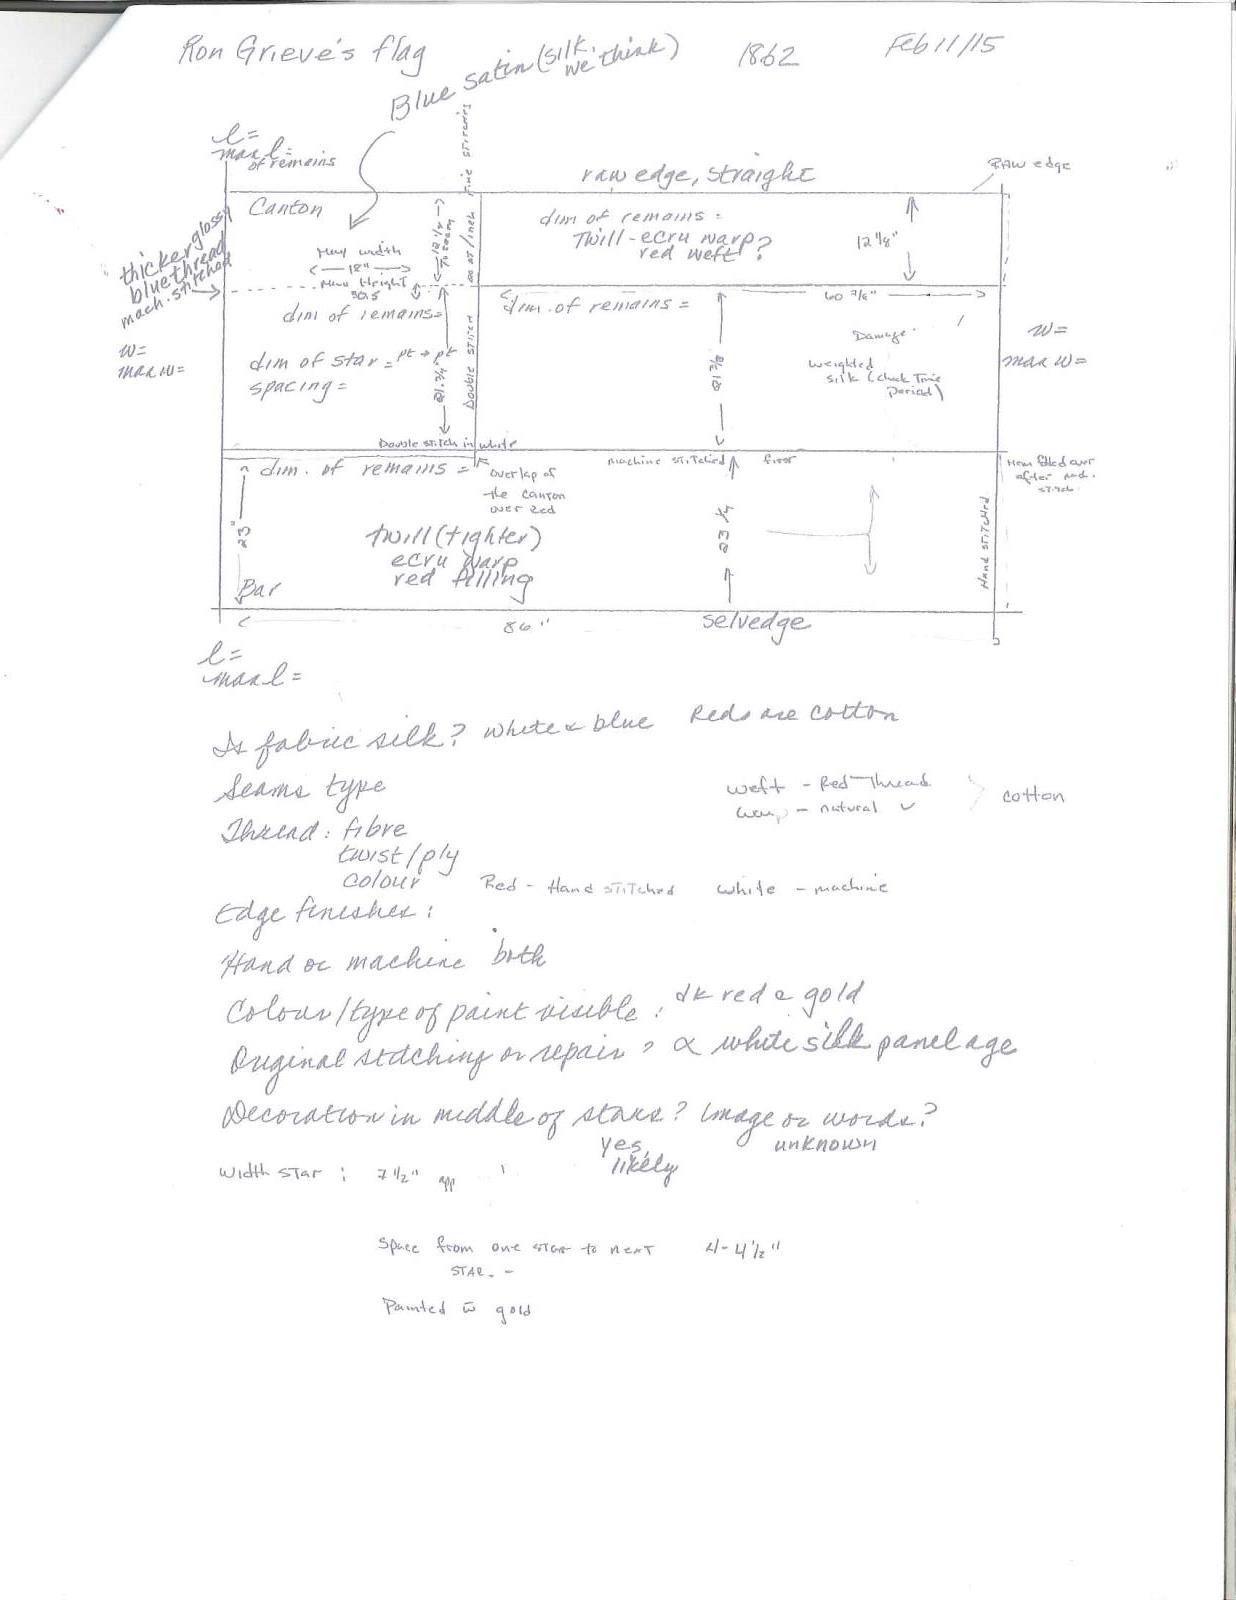 Ron Grieve's flag
1862
Feb 11/15
Blue satin (silk,
we think)
l=
max l=
of remains
raw edge, straight
RAW edge
Canton
thicker glossy
blue thread
mach. stitched
Max width
18"
Max Height
30.5
12 1/8
To seam
Fine stitches
/inch
Double stitch
dim of remains =
Twill - ecru warp
red weft?
12 1/8"
dim of remains=
dim. of remains =
60 7/8"
dim of star = pt → pt
spacing =
21 3/4"
21 3/8
Damage
weighted
silk (check Time
period)
w=
max w=
w=
max w=
Double stitch in white
dim. of remains =
overlap of
the canton
over red
machine stitched first
Hem folded over
after red.
stitch
23"
twill (tighter)
ecru warp
red filling
23 1/4
Hand stitched
Bar
86"
selvedge
l=
max l=
Is fabric silk? White & blue Reds are cotton
Seams type
weft - Red Thread
warp - natural
cotton
Thread: fibre
twist/ply
colour Red - Hand stitched white - machine
Edge finishes:
Hand or machine both
Colour/type of paint visible: dk red & gold
Original stitching or repair? & white silk panel age
Decoration in middle of stars? Image or words?
yes, likely
unknown
Width star: 7 1/2" app
Space from one star to next 4-4 1/2"
STAR. -
Painted in gold